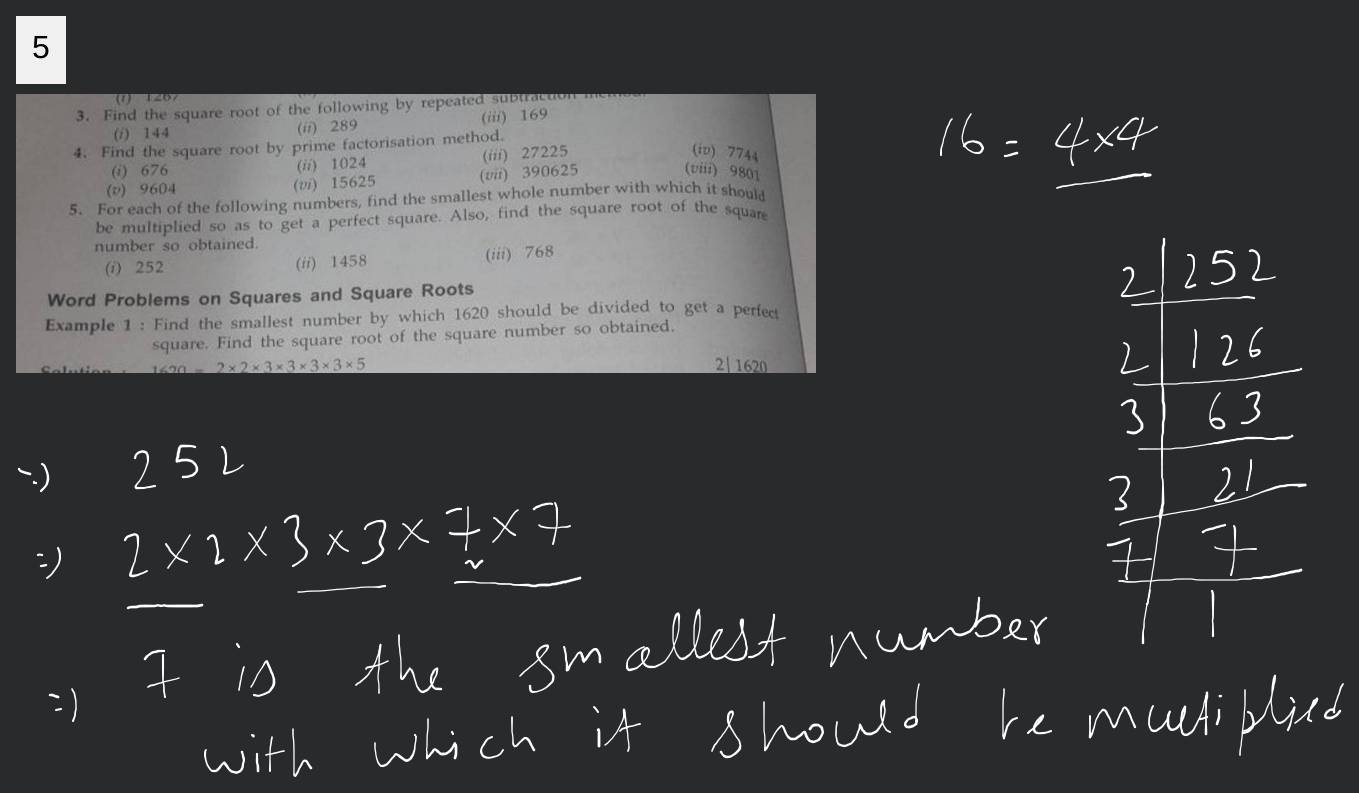 5
(i) 1267
3. Find the square root of the following by repeated subtraction method.
(i) 144 (ii) 289 (iii) 169
4. Find the square root by prime factorisation method.
(i) 676 (ii) 1024 (iii) 27225 (iv) 7744
(v) 9604 (vi) 15625 (vii) 390625 (viii) 9801
5. For each of the following numbers, find the smallest whole number with which it should
be multiplied so as to get a perfect square. Also, find the square root of the square
number so obtained.
(i) 252 (ii) 1458 (iii) 768
Word Problems on Squares and Square Roots
Example 1 : Find the smallest number by which 1620 should be divided to get a perfect
square. Find the square root of the square number so obtained.
Solution : 1620 = 2×2×3×3×3×3×5 2| 1620
16 = 4×4
2 | 252
2 | 126
3 | 63
3 | 21
7 | 7
| 1
252
=) 2×2×3×3×7×7
=) 7 is the smallest number
with which it should be multiplied